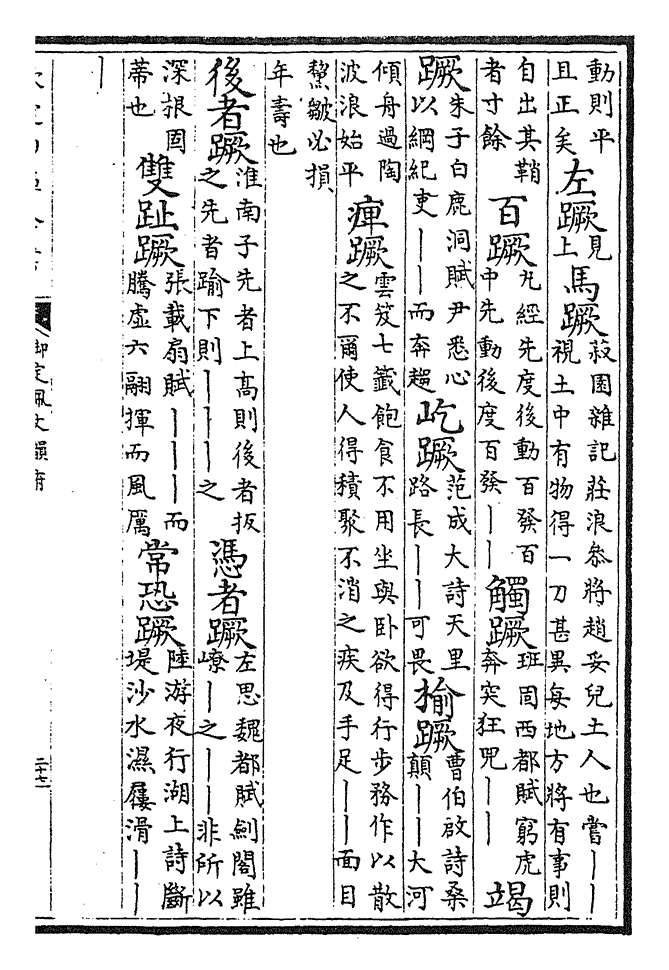 動則平
且正矣
左蹶
見
上
馬蹶
菽園雜記莊浪叅將趙妥兒土人也嘗——
視土中有物得一刀甚異每地方將有事則
自出其鞘
者寸餘
百蹶
九經先度後動百發百
中先動後度百發——
觸蹶
班固西都賦窮虎
奔突狂兕——
竭
蹶
朱子白鹿洞賦尹悉心
以綱紀吏——而奔趨
屹蹶
范成大詩天里
路長——可畏
榆蹶
曹伯啟詩桑
顛——大河
傾舟過陶
波浪始平
痺蹶
雲笈七籤飽食不用坐與卧欲得行步務作以散
之不爾使人得積聚不消之疾及手足——面目
黧皺必損
年壽也
後者蹶
淮南子先者上高則後者扳
之先者踰下則———之
憑者蹶
左思魏都賦劍閣雖
嶛—之——非所以
深根固
蒂也
雙趾蹶
張載扇賦———而
騰虛六翮揮而風厲
常恐蹶
陸游夜行湖上詩斷
堤沙水濕屨滑——
—
御定佩文韻府